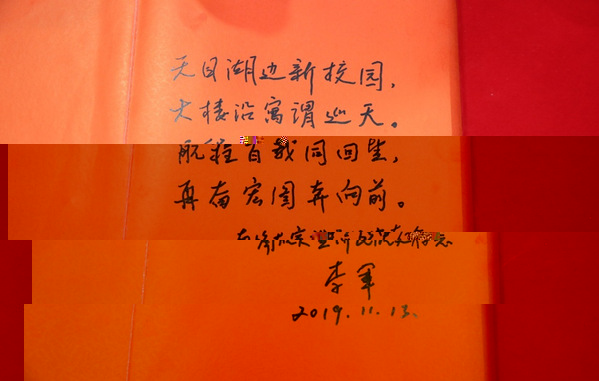 天目湖边新校园,
大楼沿寓谓巡天。
航程百载同回望,
再奋宏图奔向前。
李军
2019.11.13.